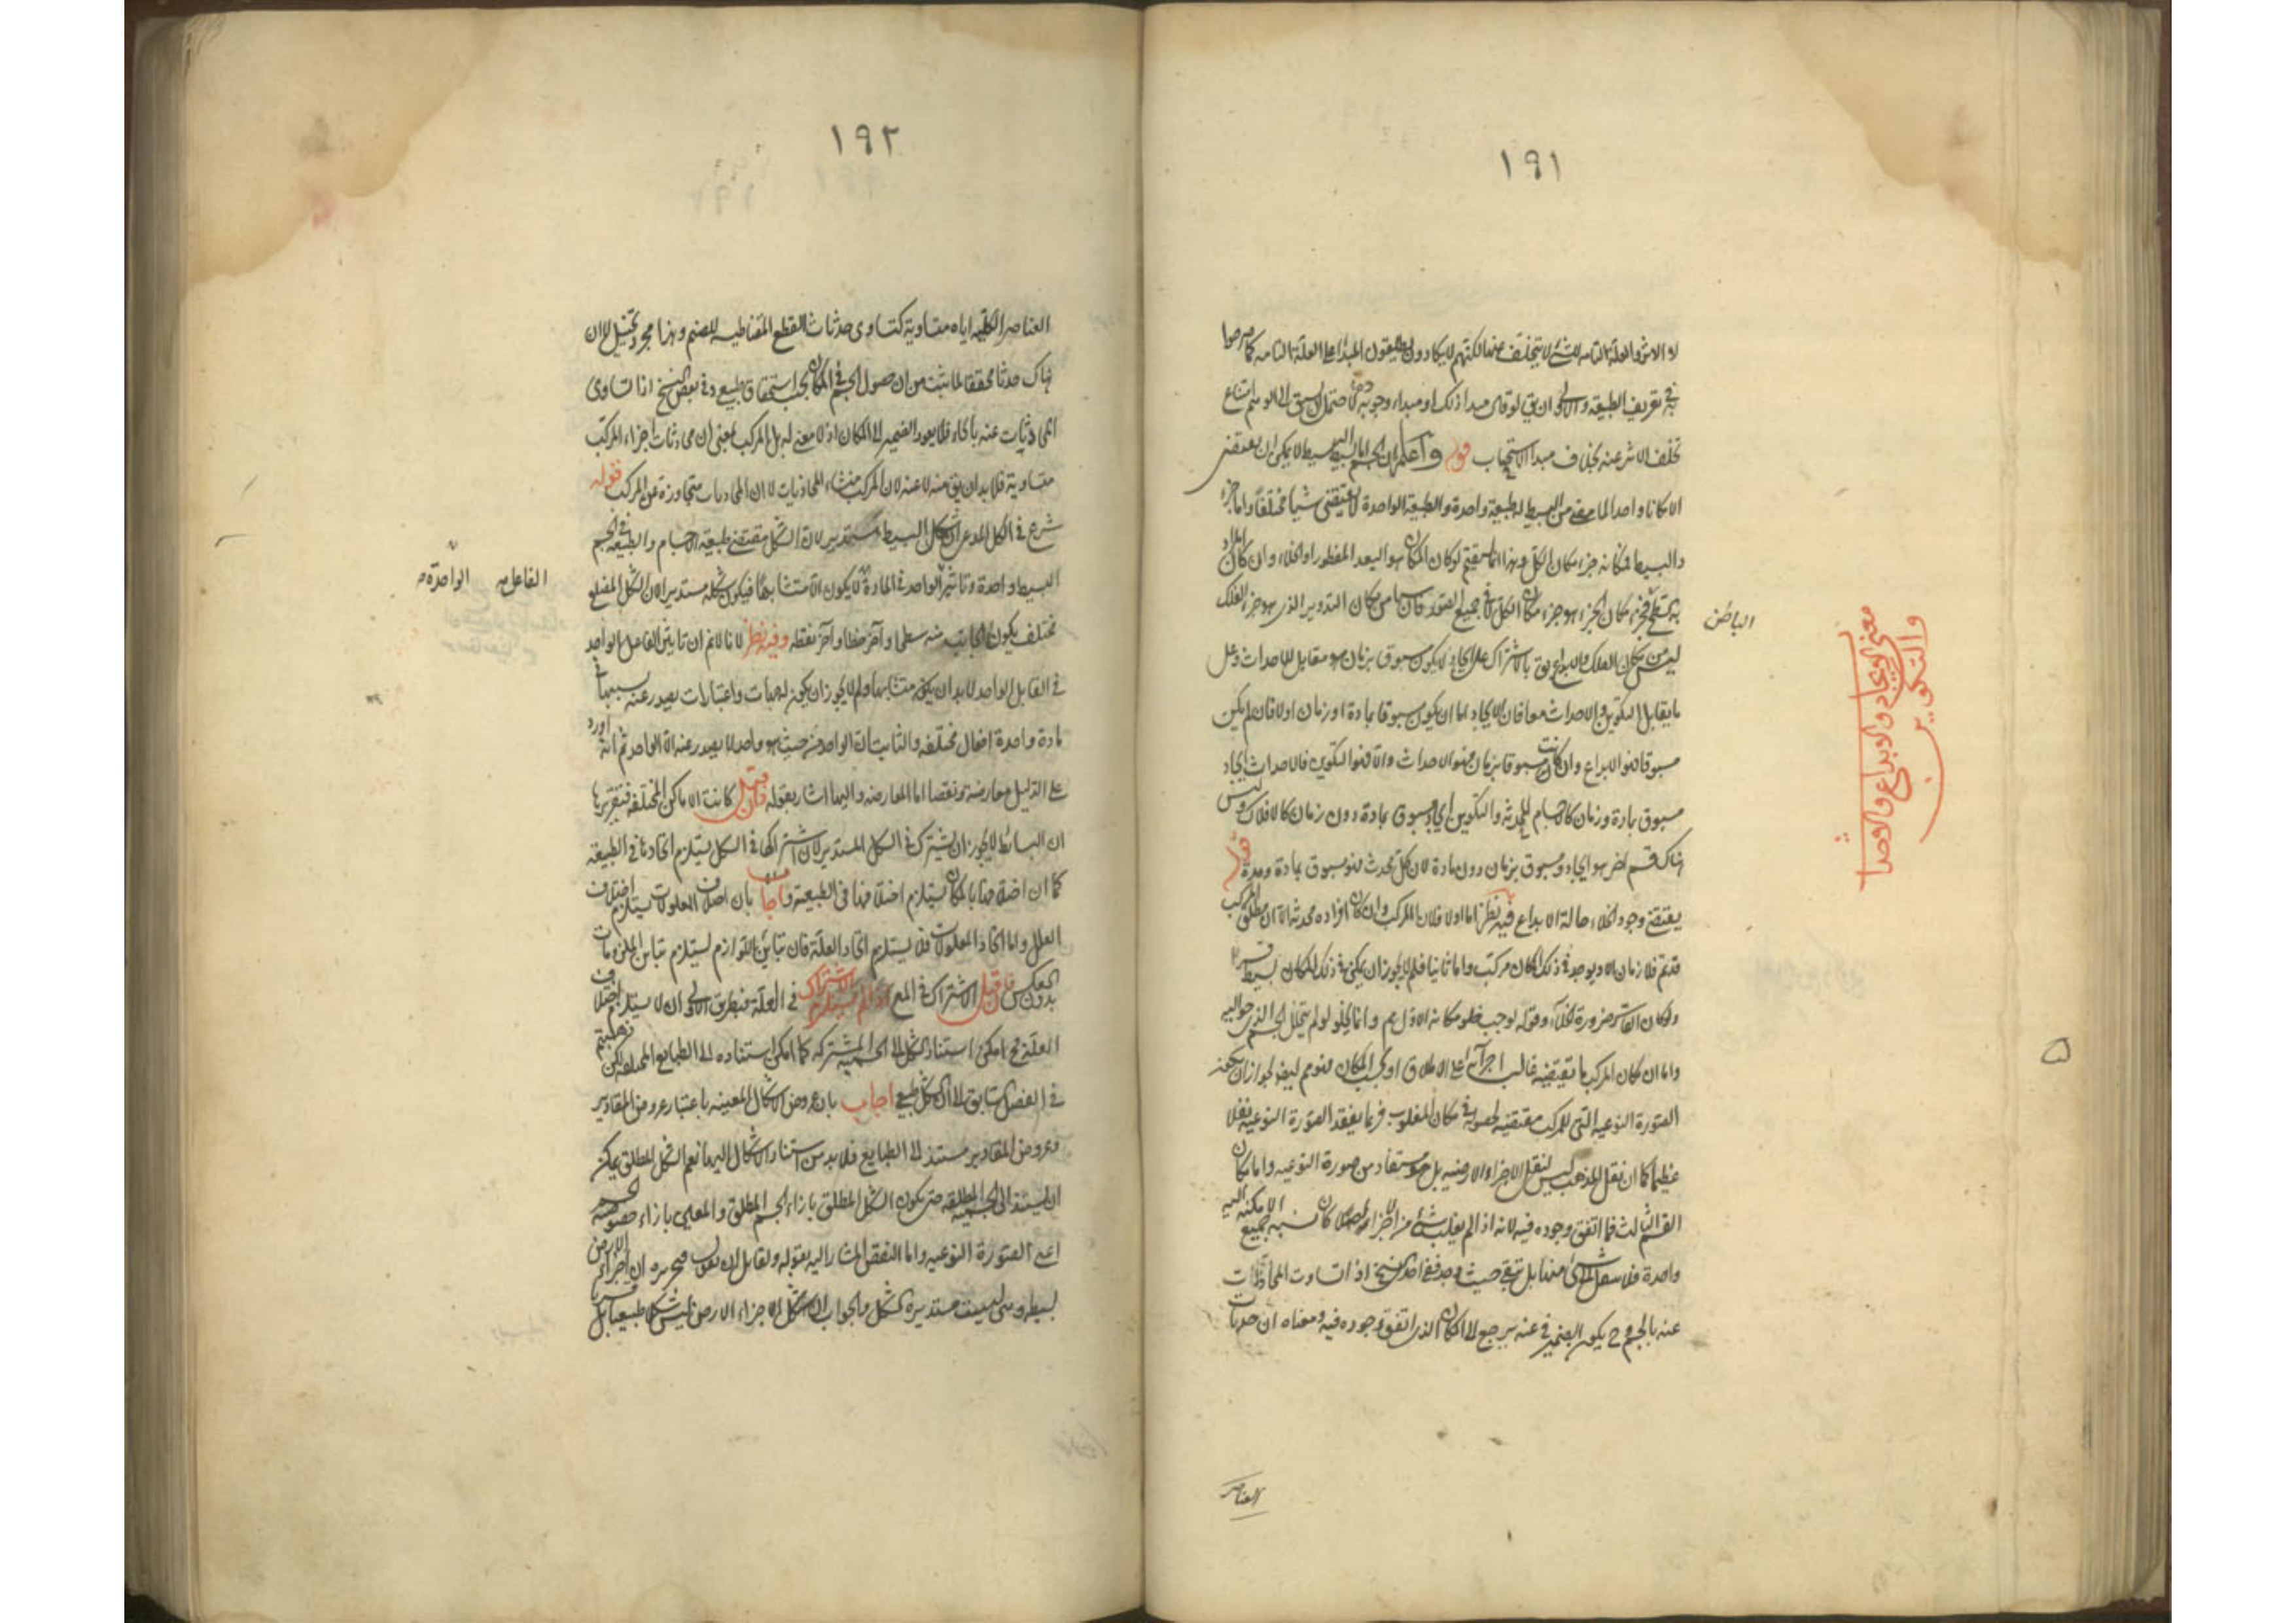 ١٩١
لا الاثر والعلة التامة للشئ لا يتخلف عنها لكنهم لا يكادون يطلقون المبدأ على العلة التامة كما مر هو
في تعريف الطبيعة والاولى ان يق لو قال مبدا ذلك او مبداء وجوبه لاحتمل
تخلف الاثر عنه بخلاف مبدا الاستيجاب قوله واعلم ان الجسم اما البسيط لا يمكن ان يقتضى
الا مكانا واحدا لما مر من البسيط له طبيعة واحدة والطبيعة الواحدة لا يقتضى شيئا مختلفا واما جزء
البسيط فمكانه جزء مكان الكل وهذا انما يستقيم لو كان المكان هو البعد المفطور او الخلاء وان كان
السطح فجزء مكان الجزء هو جزء مكان الكل لا في جميع الصور فان مكان التدوير الذى هو جزء الفلك
الباطن
ليس من مكان الفلك والابداع يق بالاشتراك على ايجاد لا يكون مسبوق بزمان هو مقابل للاحداث وعلى
ما يقابل التكوين والاحداث معا فان الايجاد اما ان يكون مسبوقا بمادة او زمان او لا فان لم يكن
مسبوقا فهو الابداع وان كانت مسبوقا بزمان فهو الاحداث والا فهو التكوين فالاحداث ايجاد
مسبوق بمادة وزمان كالاجسام المحدثة والتكوين ايجاد مسبوق بمادة دون زمان كالافلاك وليس
هناك قسم اخر هو ايجاد مسبوق بزمان دون مادة لان كل محدث فهو مسبوق بمادة ومدة قوله
يقتضى وجود الخلاء حالة الابداع فيه نظر اما اولا فلان المركب وان كان افراده محدثة الا ان مطلق المركب
قديم فلا زمان الا ويوجد في ذلك المكان مركب واما ثانيا فلم لا يجوز ان يكون في ذلك المكان بسيط قسرا
ولمكان القاسر ضرورة الخلاء وقوله لوجب خلو مكانه الاول مم وانما يخلو لو لم يتخلل الجسم الذى حواليه
واما ان مكان المركب ما يقتضيه غالب اجزائه على الاطلاق او بحسب المكان فهو مم ايضا لجواز ان يكون
الصورة النوعية التى للمركب مقتضية لحصوله في مكان المغلوب فربما يفقد الصورة النوعية ثقلا
عظيما كما ان ثقل الذهب ليس لثقل الاجزاء الارضية بل هو مستفاد من صورة النوعية واما مكان
القسم الثالث فما اتفق وجوده فيه لانه اذا لم يغلب شئ من اجزائه كان نسبة جميع الامكنة اليه
واحدة فلا ينتقل الى شئ منها بل يبقى حيث وجد ففى احدى النسخ اذا تساوت المحاذيات
عنه بالجسم وح يكون الضمير في عنه يرجع الى المكان الذى اتفق وجوده فيه ومعناه ان
العناصر
معنى الايجاد والابداع والاحداث
والتكوين
١٩٢
العناصر الكلية اياه متساوية كتساوى القطع المقناطيسية للصنم وهذا مجرد تخييل لا ان
هناك محققا لما ثبت من ان حصول الجسم في المكان بحسب استحقاق طبيعى وفى بعض النسخ اذا تساوى
المحاذيات عنه بالحاء فلا يعود الضمير الى المكان اذ لا معنى له بل الى المركب بمعنى ان محاذيات اجزاء المركب
متساوية فلا بد ان يق منه لا عنه لان المركب منشاء المحاذيات لا ان المحاذيات متجاوزة عن المركب قوله
شرع في الكل المدعى ان شكل البسيط مستدير لان الشكل مقتضى طبيعة الاجسام والطبيعة في الجسم
البسيط واحدة وتاثير الواحد في المادة لا يكون الا متشابها فيكون شكله مستديرا لان الشكل المضلع
الفاعل
الواحدة
مختلف يكون الجانب منه سطحا وآخر خطا وآخر نقطة وفيه نظر لانا لا نم ان تاثير الفاعل الواحد
في القابل الواحد لا بد ان يكون متشابها ولم لا يجوز ان يكون له جهات واعتبارات يصدر عنه بسببها
مادة واحدة افعال مختلفة والثابت ان الواحد من حيث هو واحد لا يصدر عنه الا الواحد ثم انه اورد
على الدليل معارضة ونقضا اما المعارضة واليها اشار بقوله فان قيل كانت الاماكن المختلفة فتقريرها
ان البسائط لا يجوز ان يشترك في الشكل المستدير لان اشتراكها في الشكل يستلزم اتحادها في الطبيعة
كما ان اختلافها بالمكان يستلزم اختلافها فى الطبيعة واجاب بان اختلاف المعلولات يستلزم اختلاف
العلل واما اتحاد المعلولات فلا يستلزم اتحاد العلة فان تباين اللوازم يستلزم تباين الملزومات
بدون العكس فان قيل الاشتراك في المع اذا لم يستلزم الاشتراك في العلة فبطريق الاولى ان لا يستلزم اختلاف
العلة فح امكن استناد الشكل الى الجسمية المشتركة كما امكن استناده الى الطبايع المختلفة لكن
في الفصل السابق ان الشكل طبيعى اجاب بان عروض الاشكال المعينة باعتبار عروض المقادير
وعروض المقادير مستند الى الطبايع فلا بد من استناد الاشكال اليها نعم الشكل المطلق يمكن
ان يستند الى الجسمية المطلقة حتى يكون الشكل المطلق بازاء الجسم المطلق والمعين بازاء
اعنى الصورة النوعية واما النقض المشار اليه بقوله ولقائل ان يقول فتحريره ان اجزاء الارض
بسيطة وهى ليست مستديرة الشكل والجواب ان شكل الاجزاء الارضى ليس شكلا طبيعيا بل